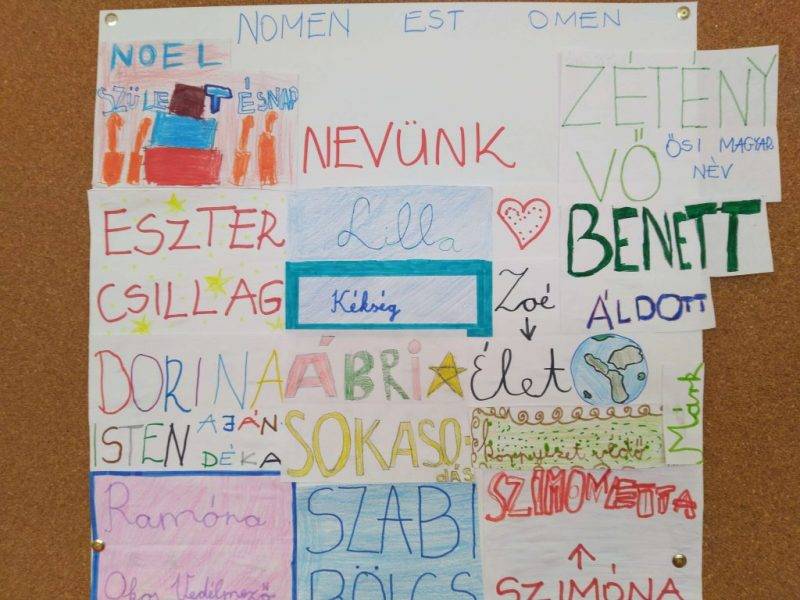 NOMEN EST OMEN
NOEL
SZÜLETÉSNAP
NEVÜNK
ZÉTÉNY
VŐ
ŐSI MAGYAR
NÈV
ESZTER
CSILLAG
Lilla
Kékség
Zoé
Élet
BENETT
ÁLDOTT
DORINA
ISTEN AJÁN
DÉKA
ÁBRI
SOKASO-
DÁS
Környezet védő
Márk
Ramóna
Okos Vedélmező
SZABI
BÖLCS
SZIMONETTA
SZIMÓNA